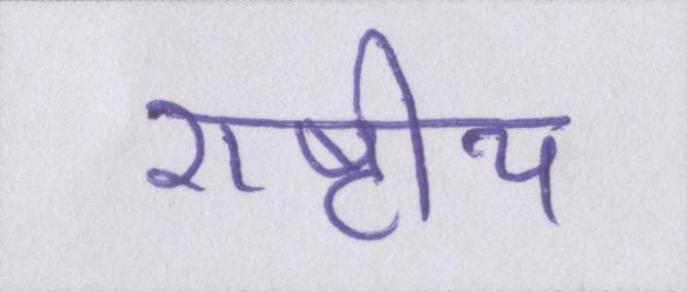 राष्टीय